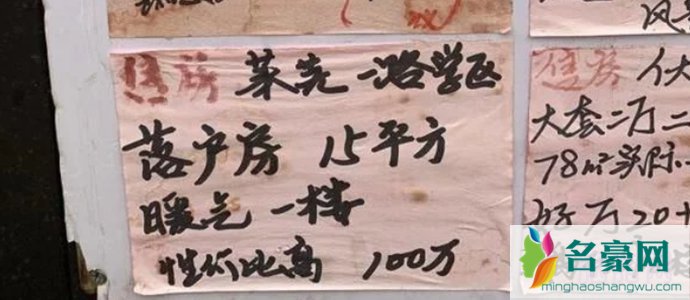 售房 莱芜一路学区
落户房 15平方
暖气 一楼
性价比高 100万
售房
大套二厅二
78㎡实际
20
名豪网
minghaoshangwu.com